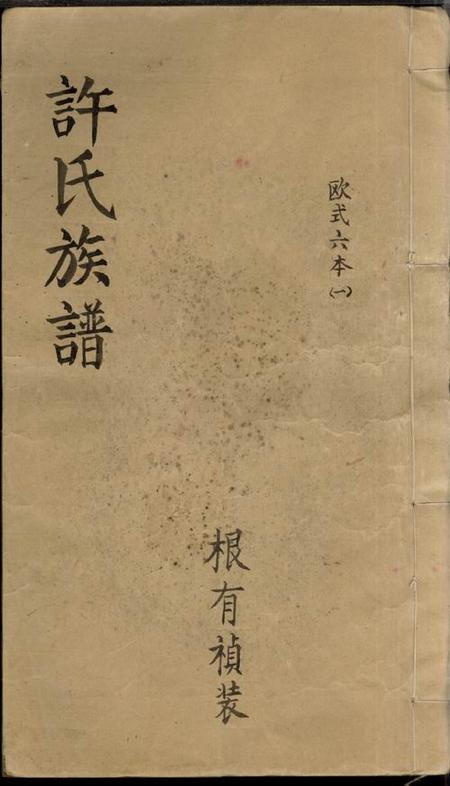 欧式六本(一)
根有禎装
許氏族譜